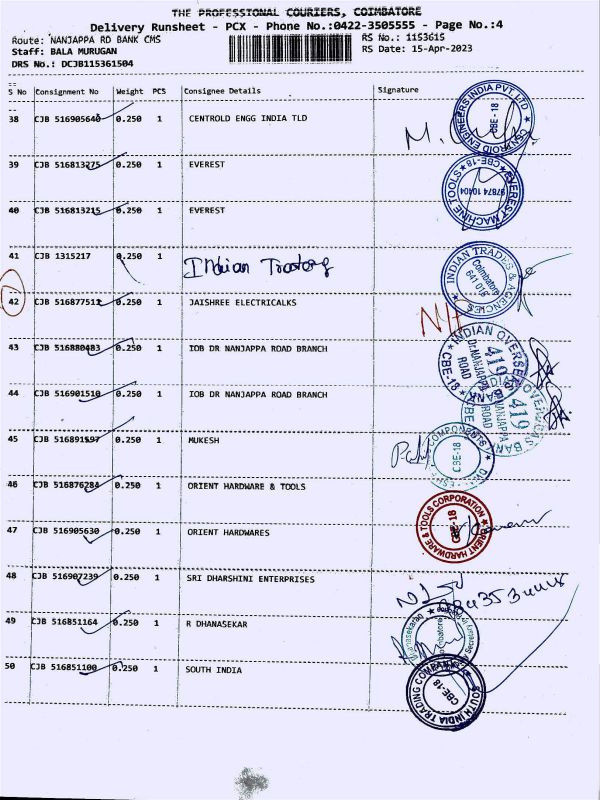 THE PROFESSIONAL COURIERS, COIMBATORE
Delivery Runsheet - PCX - Phone No.:0422-3505555 - Page No.:4
Route: NANJAPPA RD BANK CMS RS No.: 1153615
Staff: BALA MURUGAN RS Date: 15-Apr-2023
DRS No.: DCJB115361504
S No Consignment No Weight PCS Consignee Details Signature
38 CJB 516905640 0.250 1 CENTROLD ENGG INDIA TLD
39 CJB 516813275 0.250 1 EVEREST
40 CJB 516813215 0.250 1 EVEREST
41 CJB 1315217 0.250 1 Indian Trading
42 CJB 516877511 0.250 1 JAISHREE ELECTRICALKS
43 CJB 516880483 0.250 1 IOB DR NANJAPPA ROAD BRANCH
44 CJB 516901510 0.250 1 IOB DR NANJAPPA ROAD BRANCH
45 CJB 516891597 0.250 1 MUKESH
46 CJB 516876284 0.250 1 ORIENT HARDWARE & TOOLS
47 CJB 516905630 0.250 1 ORIENT HARDWARES
48 CJB 516907239 0.250 1 SRI DHARSHINI ENTERPRISES
49 CJB 516851164 0.250 1 R DHANASEKAR
50 CJB 516851100 0.250 1 SOUTH INDIA
ENGINEERS INDIA PVT. LTD. CBE-18
EVEREST MACHINE TOOLS CBE-18 97874 10404
INDIAN TRADES & AGENCIES Coimbatore 641 018
INDIAN OVERSEAS BANK 419 Dr.NANJAPPA ROAD CBE-18
419 NANJAPPA ROAD
COMPONENTS CBE-18
ORIENT HARDWARE & TOOLS CORPORATION CBE-18
SOUTH INDIA TRADING COMPANY CBE-18